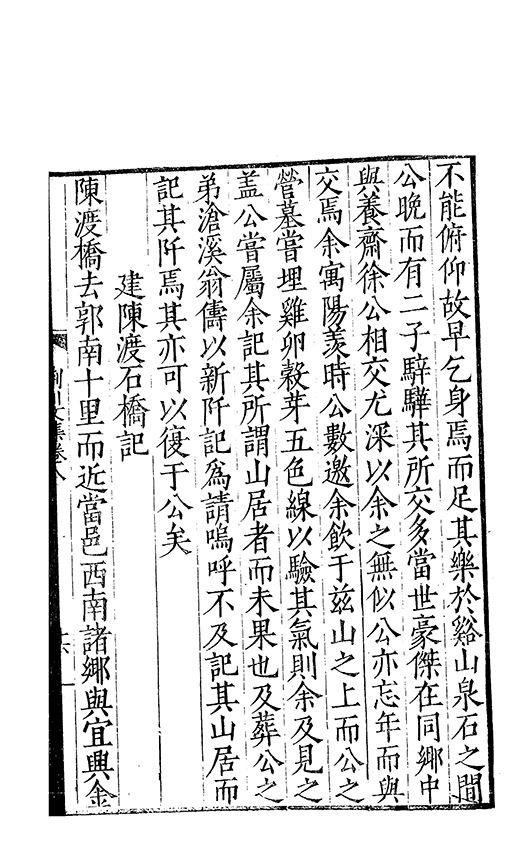 不能俯仰故早乞身焉而足其樂於谿山泉石之間
公晚而有二子騂驊其所交多當世豪傑在同鄉中
與養齋徐公相交尤深以余之無似公亦忘年而與
交焉余寓陽羨時公數邀余飲于兹山之上而公之
營墓嘗埋雞卵穀芽五色線以驗其氣則余及見之
盖公嘗屬余記其所謂山居者而未果也及葬公之
弟滄溪翁儔以新阡記爲請嗚呼不及記其山居而
記其阡焉其亦可以復于公矣
建陳渡石橋記
陳渡橋去郭南十里而近當邑西南諸鄉與宜興金
荆川文集卷八